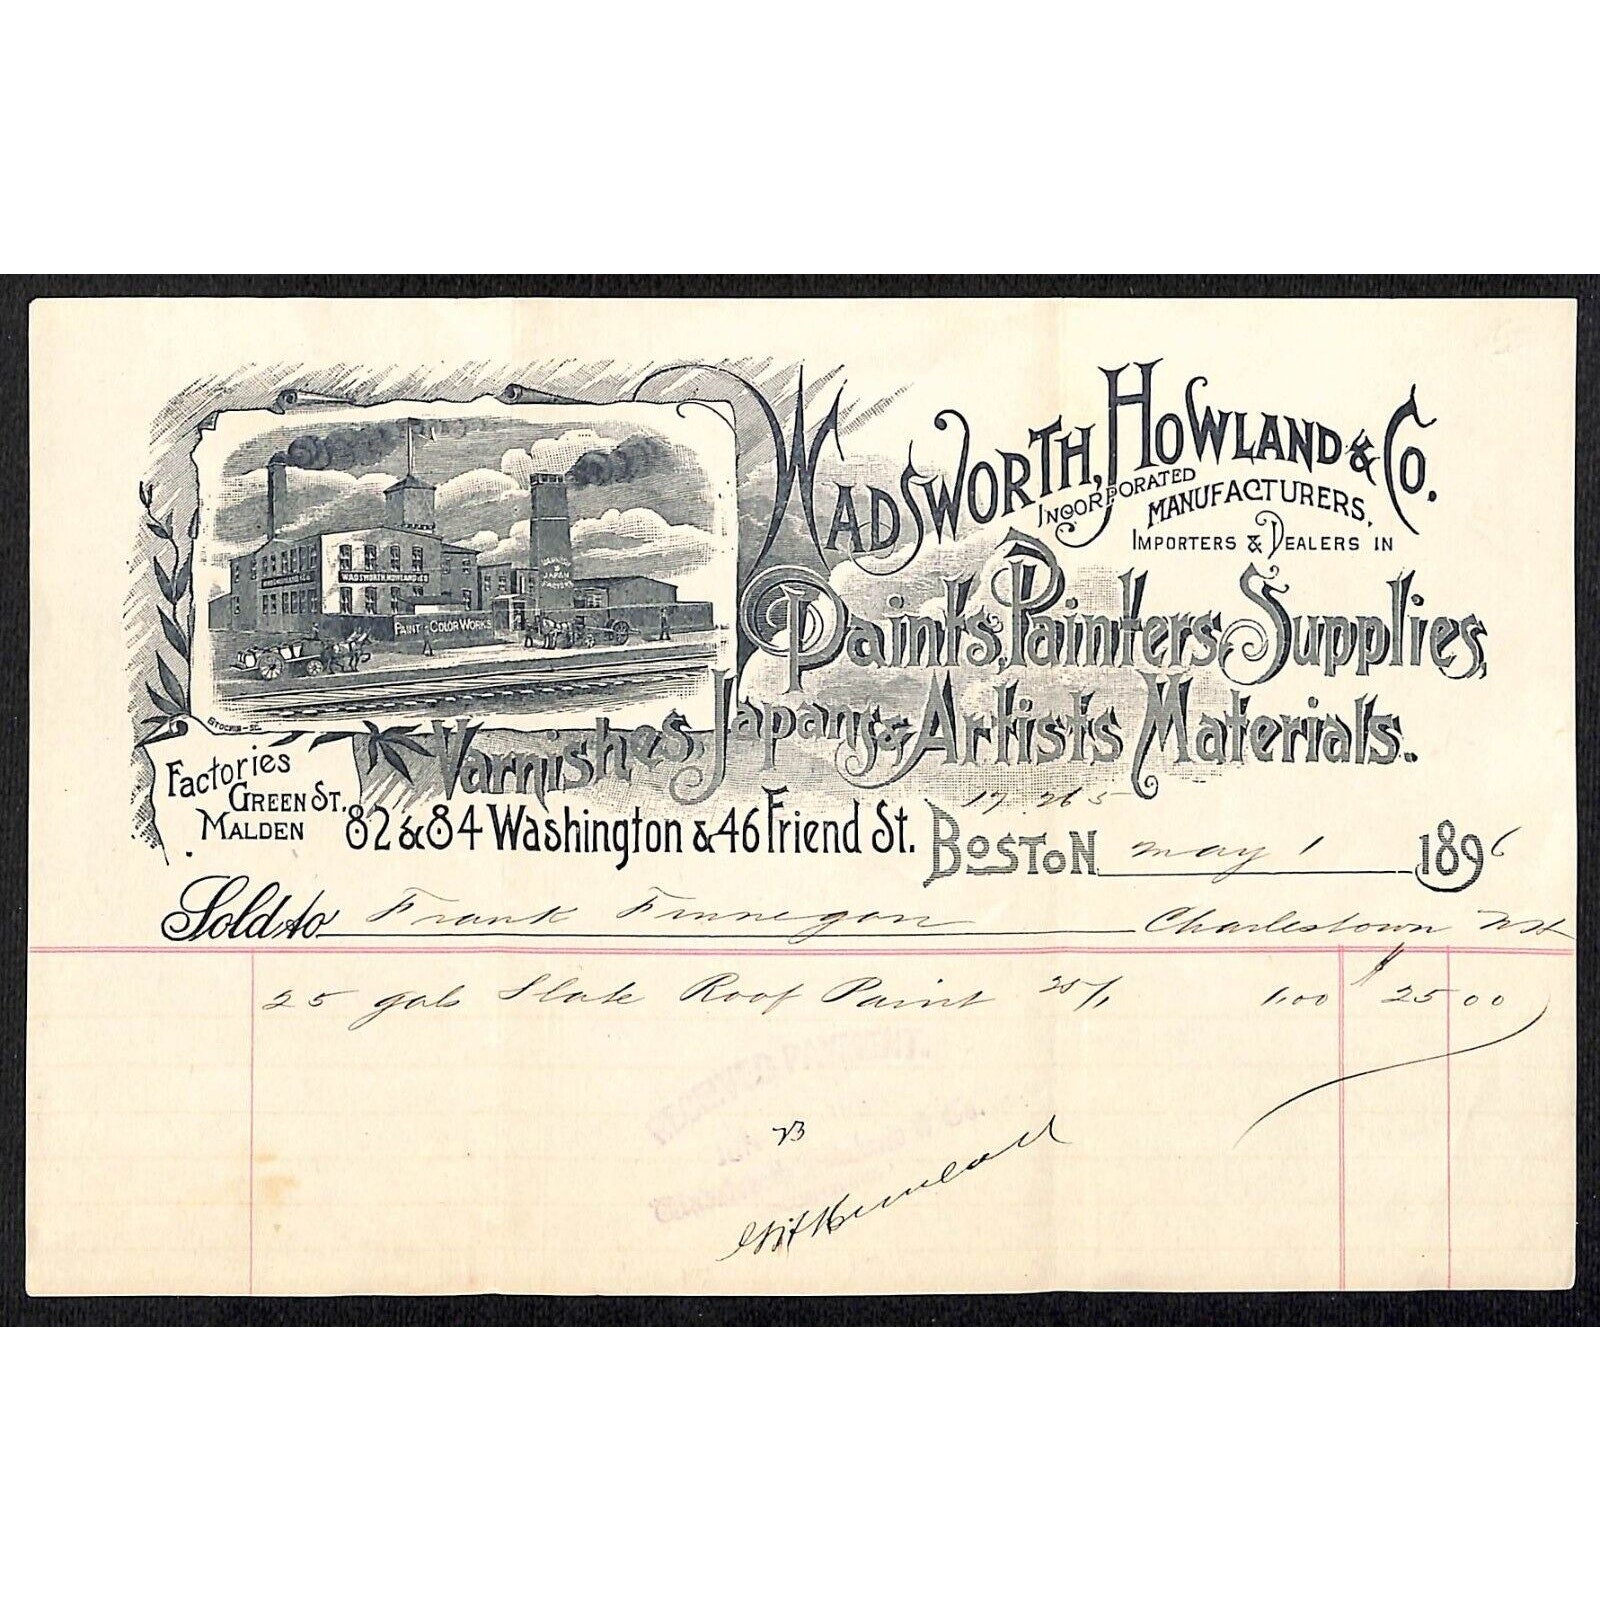 WADSWORTH, HOWLAND & CO.
INCORPORATED
MANUFACTURERS,
IMPORTERS & DEALERS IN
Paints, Painters Supplies,
Varnishes, Japans & Artists Materials.
WADSWORTH, HOWLAND & CO
VARNISH & JAPAN FACTORY
PAINT & COLOR WORKS
Factories
GREEN ST.
MALDEN
82 & 84 Washington & 46 Friend St.
17265
BOSTON May 1 1896
Sold to Frank Finnegan Charlestown NH
25 gals Slate Roof Paint 25/1 1.00 $25 00